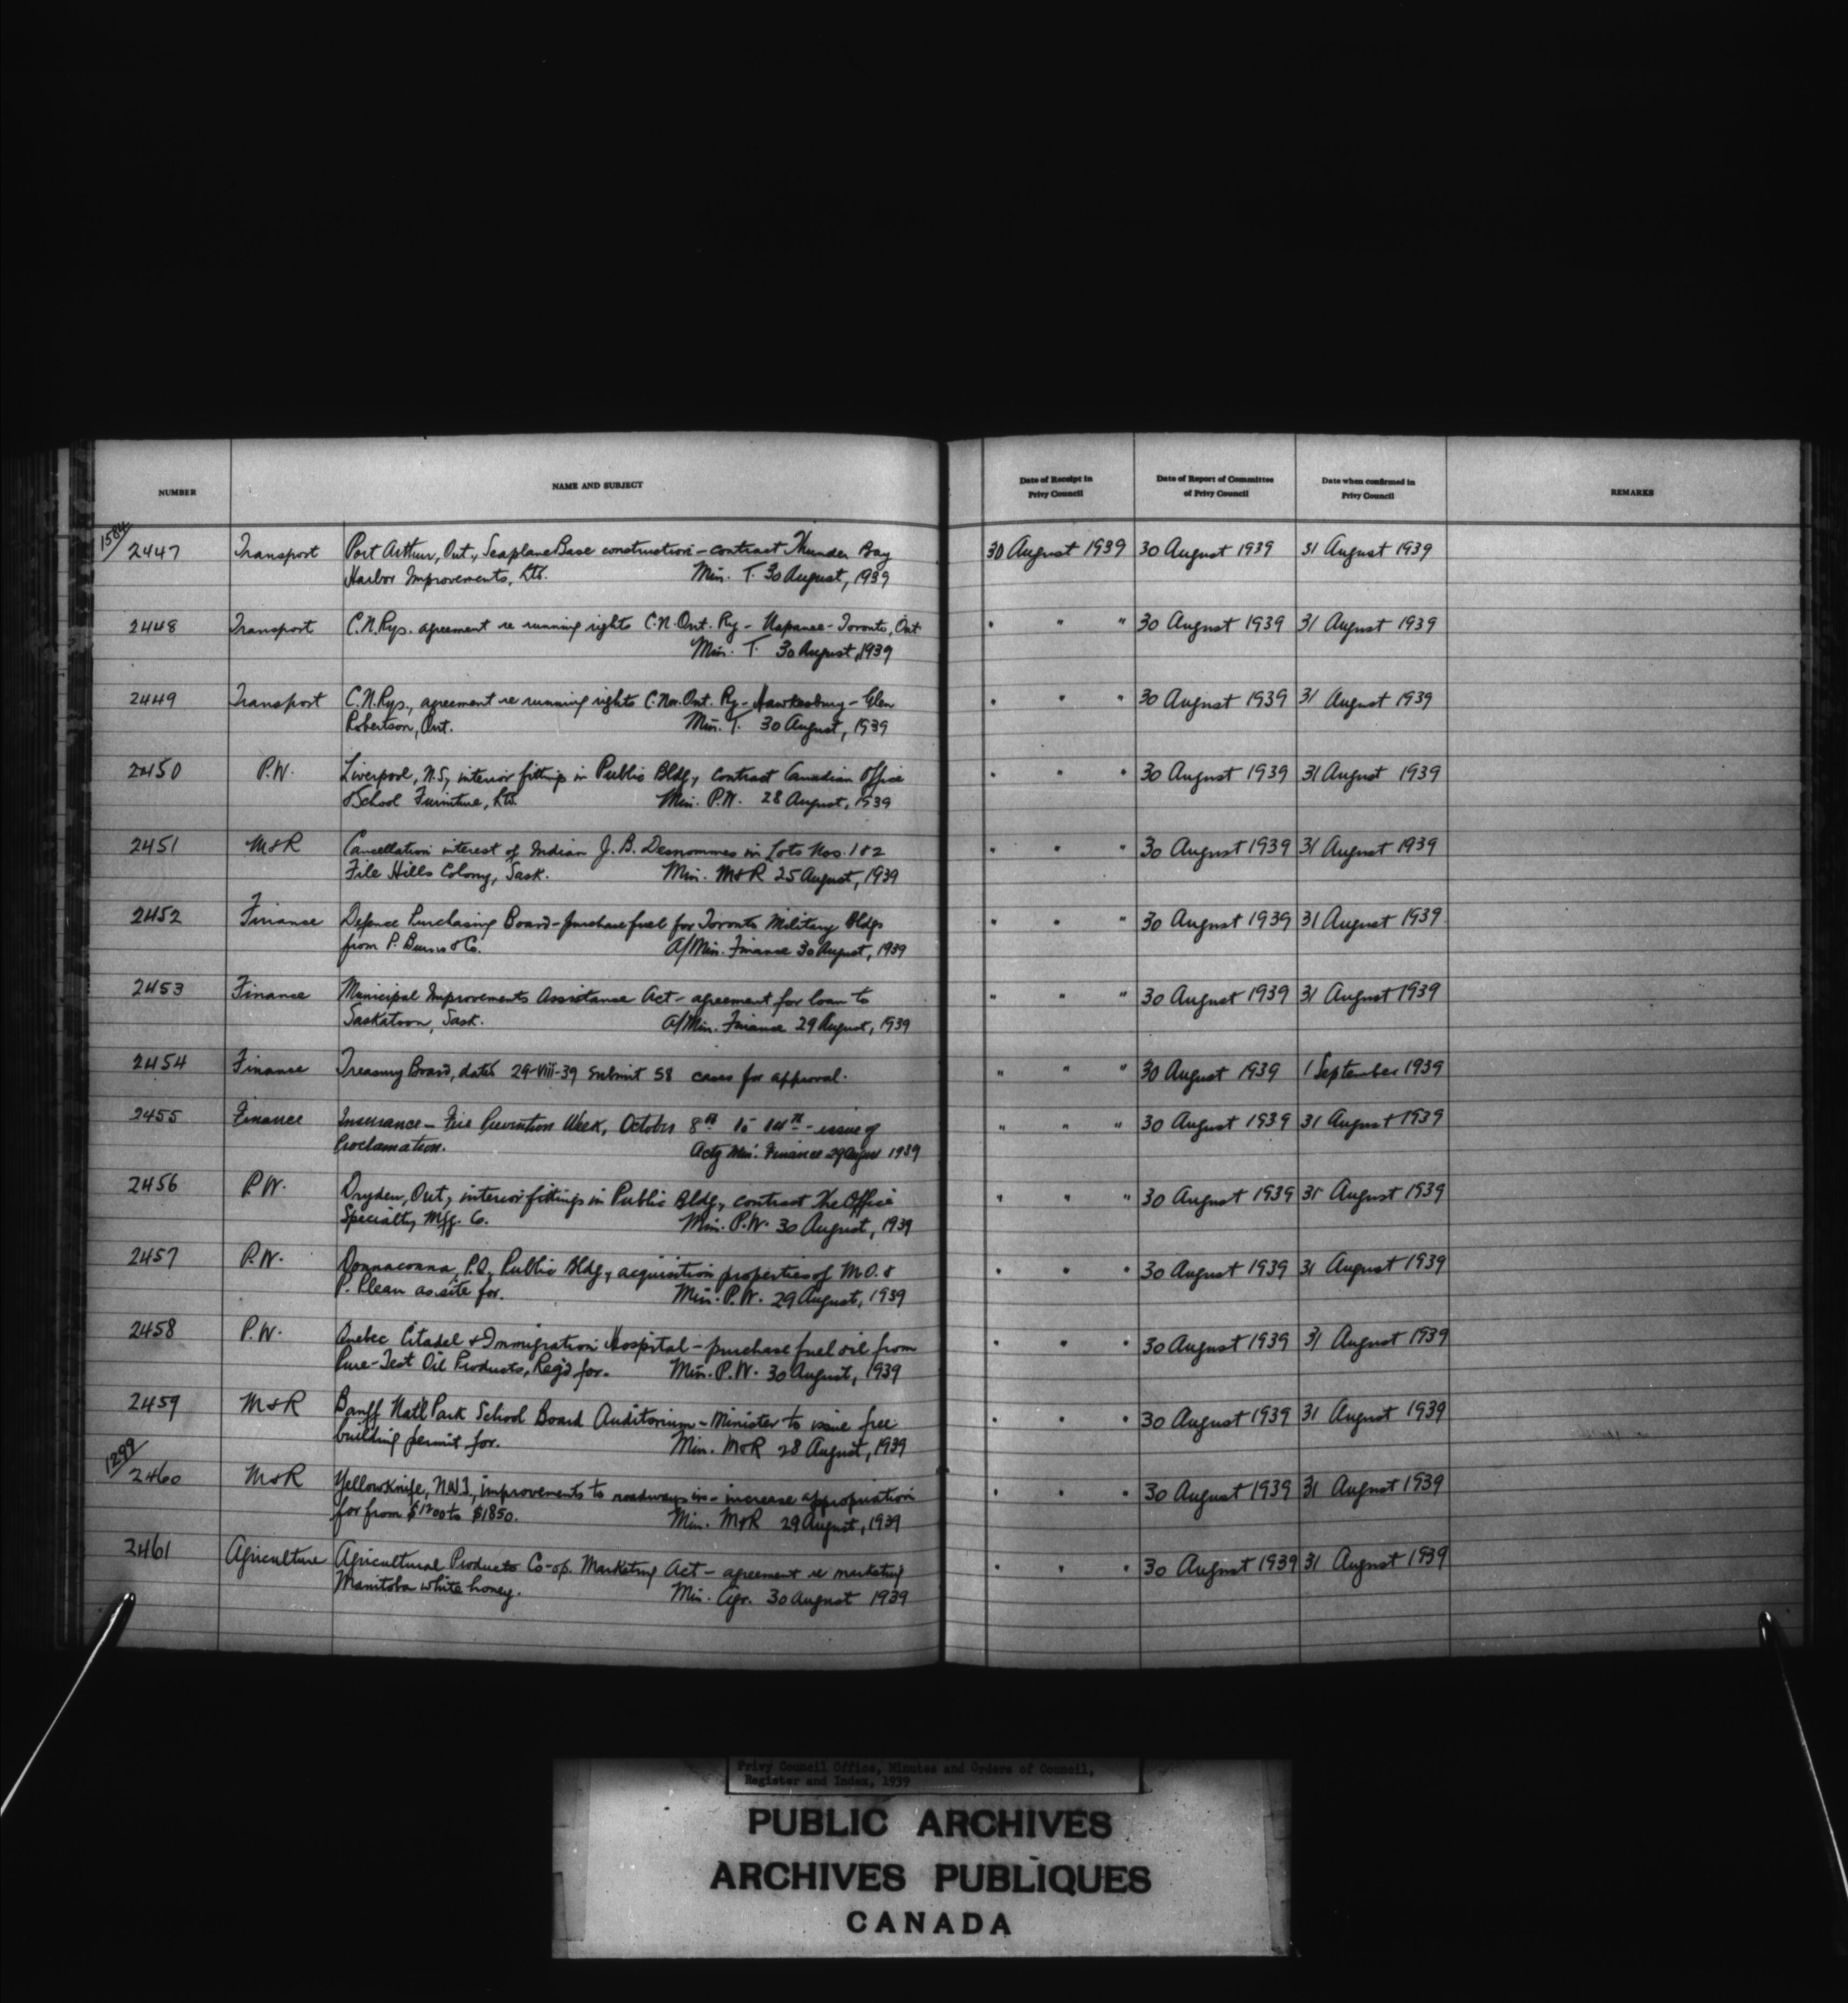 NUMBER NAME AND SUBJECT Date of Receipt in Privy Council Date of Report of Committee of Privy Council Date when confirmed in Privy Council REMARKS
1584/
2447 Transport Port Arthur, Ont., Seaplane Base construction - contract Thunder Bay 30 August 1939 30 August 1939 31 August 1939
Harbor Improvements, Ltd. Min. T. 30 August, 1939
2448 Transport C.N.Rys. agreement re running rights C.N. Ont. Ry - Napanee - Toronto, Ont " " " 30 August 1939 31 August 1939
Min. T. 30 August, 1939
2449 Transport C.N.Rys., agreement re running rights C. Nor. Ont. Ry - Hawkesbury - Glen " " " 30 August 1939 31 August 1939
Robertson, Ont. Min. T. 30 August, 1939
2450 P.W. Liverpool, N.S., interior fittings in Public Bldg, contract Canadian Office " " " 30 August 1939 31 August 1939
& School Furniture, Ltd. Min. P.W. 28 August, 1939
2451 M&R Cancellation interest of Indian J. B. Desnommes in Lots Nos. 1 & 2 " " " 30 August 1939 31 August 1939
File Hills Colony, Sask. Min. M&R 25 August, 1939
2452 Finance Defence Purchasing Board - purchase fuel for Toronto Military Bldgs " " " 30 August 1939 31 August 1939
from P. Burns & Co. A/Min. Finance 30 August, 1939
2453 Finance Municipal Improvements Assistance Act - agreement for loan to " " " 30 August 1939 31 August 1939
Saskatoon, Sask. A/Min. Finance 29 August, 1939
2454 Finance Treasury Board, dated 29-VIII-39 submit 58 cases for approval. " " " 30 August 1939 1 September 1939
2455 Finance Insurance - Fire Prevention Week, October 8th to 14th - issue of " " " 30 August 1939 31 August 1939
Proclamation. Actg Min. Finance 29 August 1939
2456 P.W. Dryden, Ont., interior fittings in Public Bldg, contract The Office " " " 30 August 1939 31 August 1939
Specialty Mfg. Co. Min. P.W. 30 August, 1939
2457 P.W. Donnaconna, P.Q. Public Bldg, acquisition properties of M.O. & " " " 30 August 1939 31 August 1939
P. Plean as site for. Min. P.W. 29 August, 1939
2458 P.W. Quebec Citadel & Immigration Hospital - purchase fuel oil from " " " 30 August 1939 31 August 1939
Pure-Test Oil Products, Reg'd for. Min. P.W. 30 August, 1939
2459 M&R Banff Nat'l Park School Board Auditorium - Minister to issue free " " " 30 August 1939 31 August 1939
building permit for. Min. M&R 28 August, 1939
1299/
2460 M&R Yellowknife, N.W.T., improvements to roadways in - increase appropriation " " " 30 August 1939 31 August 1939
for from $1200 to $1850. Min. M&R 29 August, 1939
2461 Agriculture Agricultural Products Co-op. Marketing Act - agreement re marketing " " " 30 August 1939 31 August 1939
Manitoba white honey. Min. Agr. 30 August 1939
Privy Council Office, Minutes and Orders of Council,
Register and Index, 1939
PUBLIC ARCHIVES
ARCHIVES PUBLIQUES
CANADA